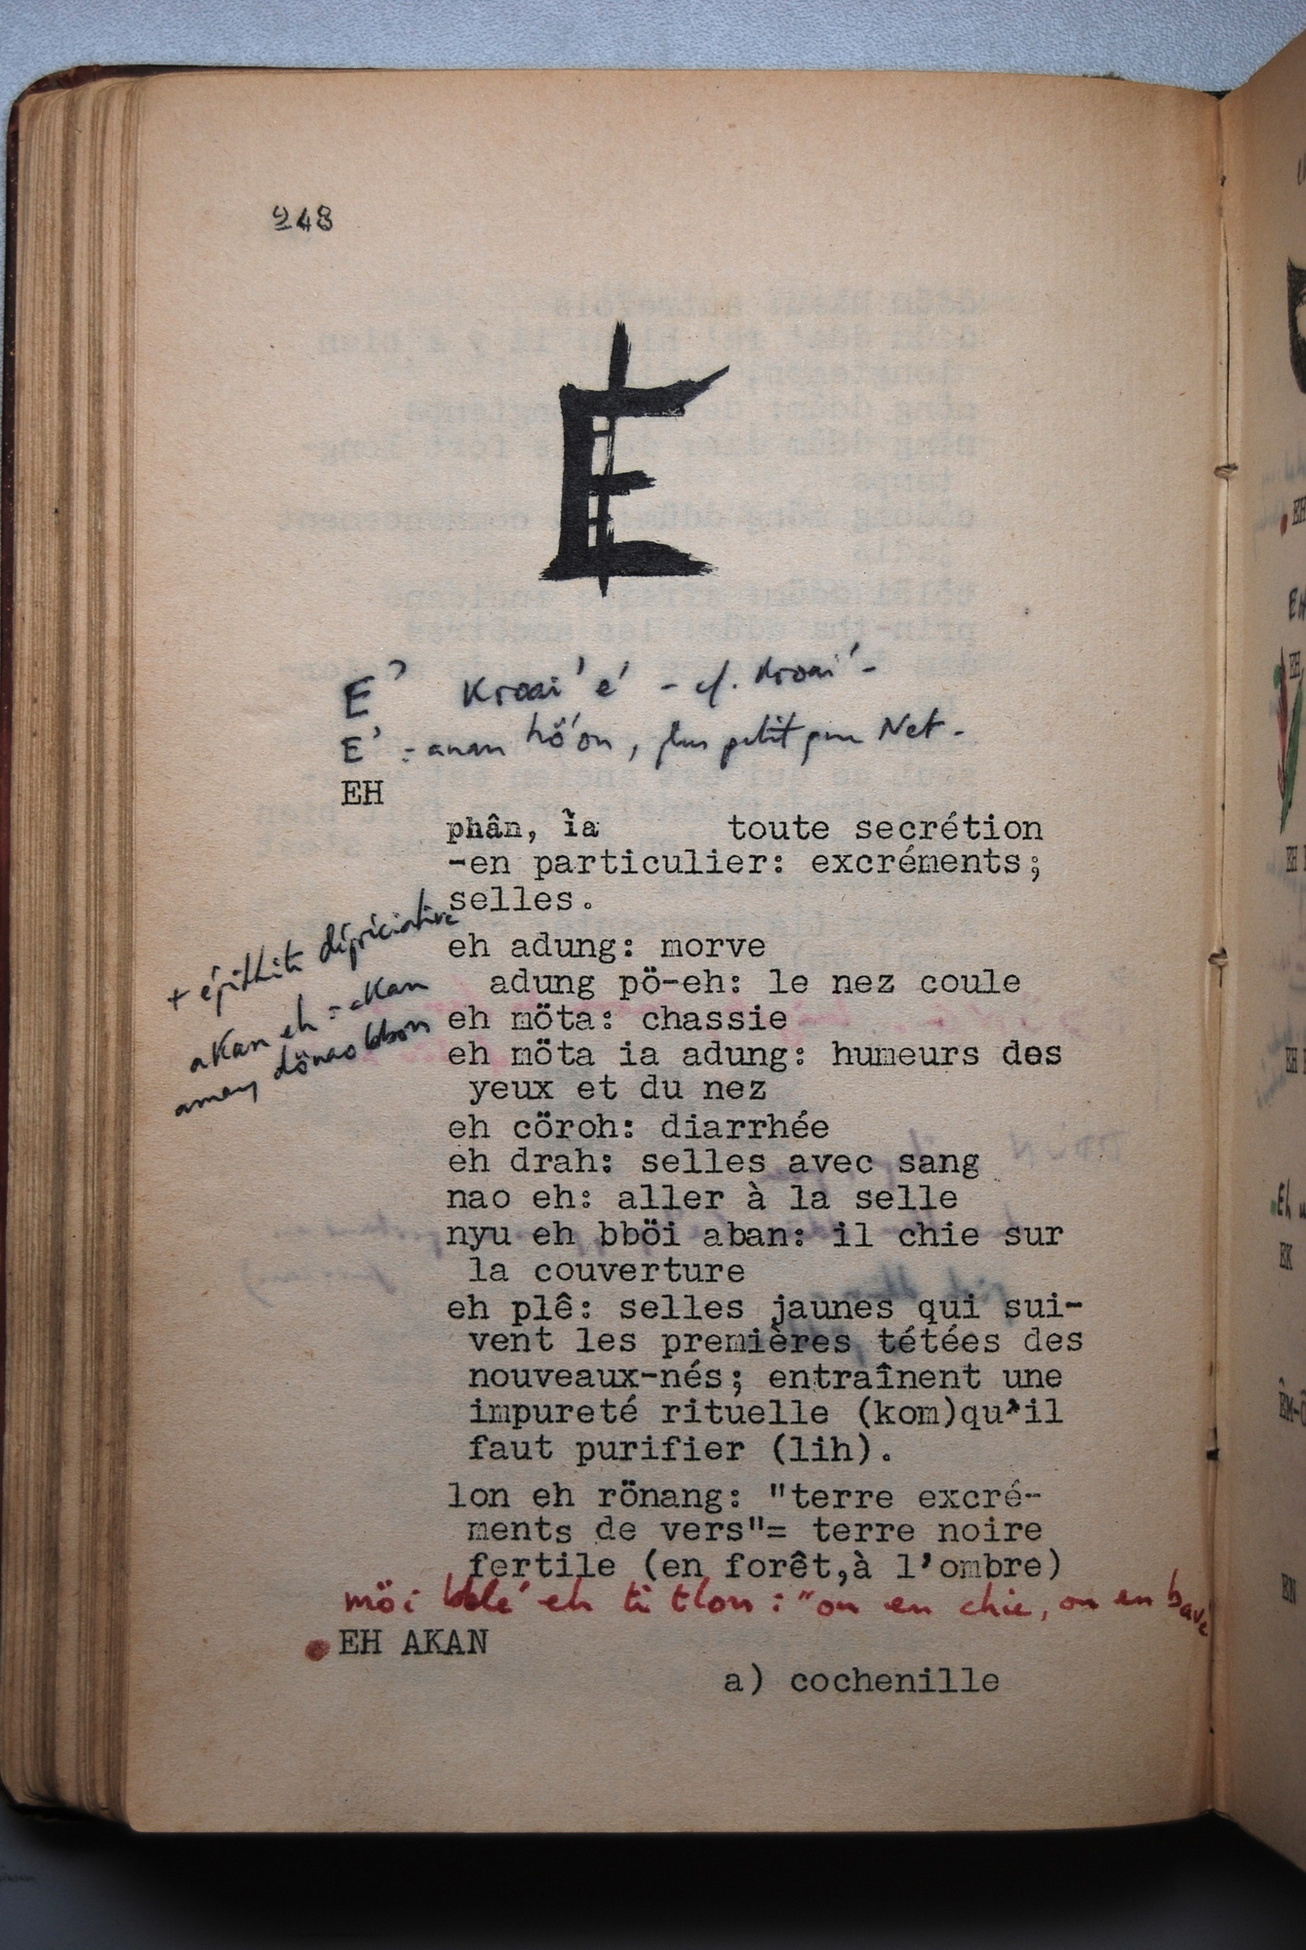 248
E
E' Kroai' e' - cf. Kroai' -
E' = anan hö'on, plus petit que Net -
EH
phân, ìa toute secrétion
-en particulier: excréments;
selles.
+ épithète dépréciative
akan eh = akan
amay dönao bbon
eh adung: morve
adung pö-eh: le nez coule
eh möta: chassie
eh möta ia adung: humeurs des
yeux et du nez
eh cöroh: diarrhée
eh drah: selles avec sang
nao eh: aller à la selle
nyu eh bböi aban: il chie sur
la couverture
eh plê: selles jaunes qui sui-
vent les premières tétées des
nouveaux-nés; entraînent une
impureté rituelle (kom)qu'il
faut purifier (lih).
lon eh rönang: "terre excré-
ments de vers"= terre noire
fertile (en forêt,à l'ombre)
möi bblé eh ti tlon : "on en chie, on en bave
EH AKAN
a) cochenille